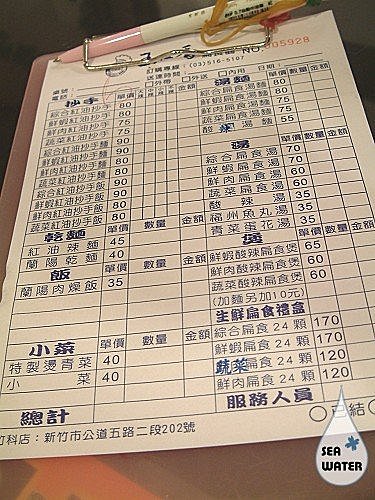 NO.005928
訂購專線:(03)516-5107
送達時間: □外送 □內用 日期:
電話:
抄手 單價 數量 金額
綜合紅油抄手 80
鮮蝦紅油抄手 80
鮮肉紅油抄手 75
蔬菜紅油抄手 75
綜合紅油抄手麵 90
鮮蝦紅油抄手麵 90
鮮肉紅油抄手麵 80
蔬菜紅油抄手麵 80
綜合紅油抄手飯 90
鮮蝦紅油抄手飯 90
鮮肉紅油抄手飯 80
蔬菜紅油抄手飯 80
乾麵 單價 數量 金額
紅油辣麵 45
蘭陽乾麵 40
飯 單價 數量 金額
蘭陽肉燥飯 35
小菜 單價 數量 金額
特製燙青菜 40
小菜 40
總計
湯麵 單價 數量 金額
綜合扁食湯麵 80
鮮蝦扁食湯麵 80
鮮肉扁食湯麵 75
蔬菜扁食湯麵 75
酸辣湯麵 55
湯 單價 數量 金額
綜合扁食湯 70
鮮蝦扁食湯 70
鮮肉扁食湯 60
蔬菜扁食湯 60
酸辣湯 35
福州魚丸湯 35
青菜蛋花湯 35
煲 單價 數量 金額
鮮蝦酸辣扁食煲 65
鮮肉酸辣扁食煲 60
蔬菜酸辣扁食煲 60
(加麵另加10元)
生鮮扁食禮盒
綜合扁食24顆 170
鮮蝦扁食24顆 170
蔬菜扁食24顆 120
鮮肉扁食24顆 120
服務人員
○已結
竹科店：新竹市公道五路二段202號
SEA
WATER